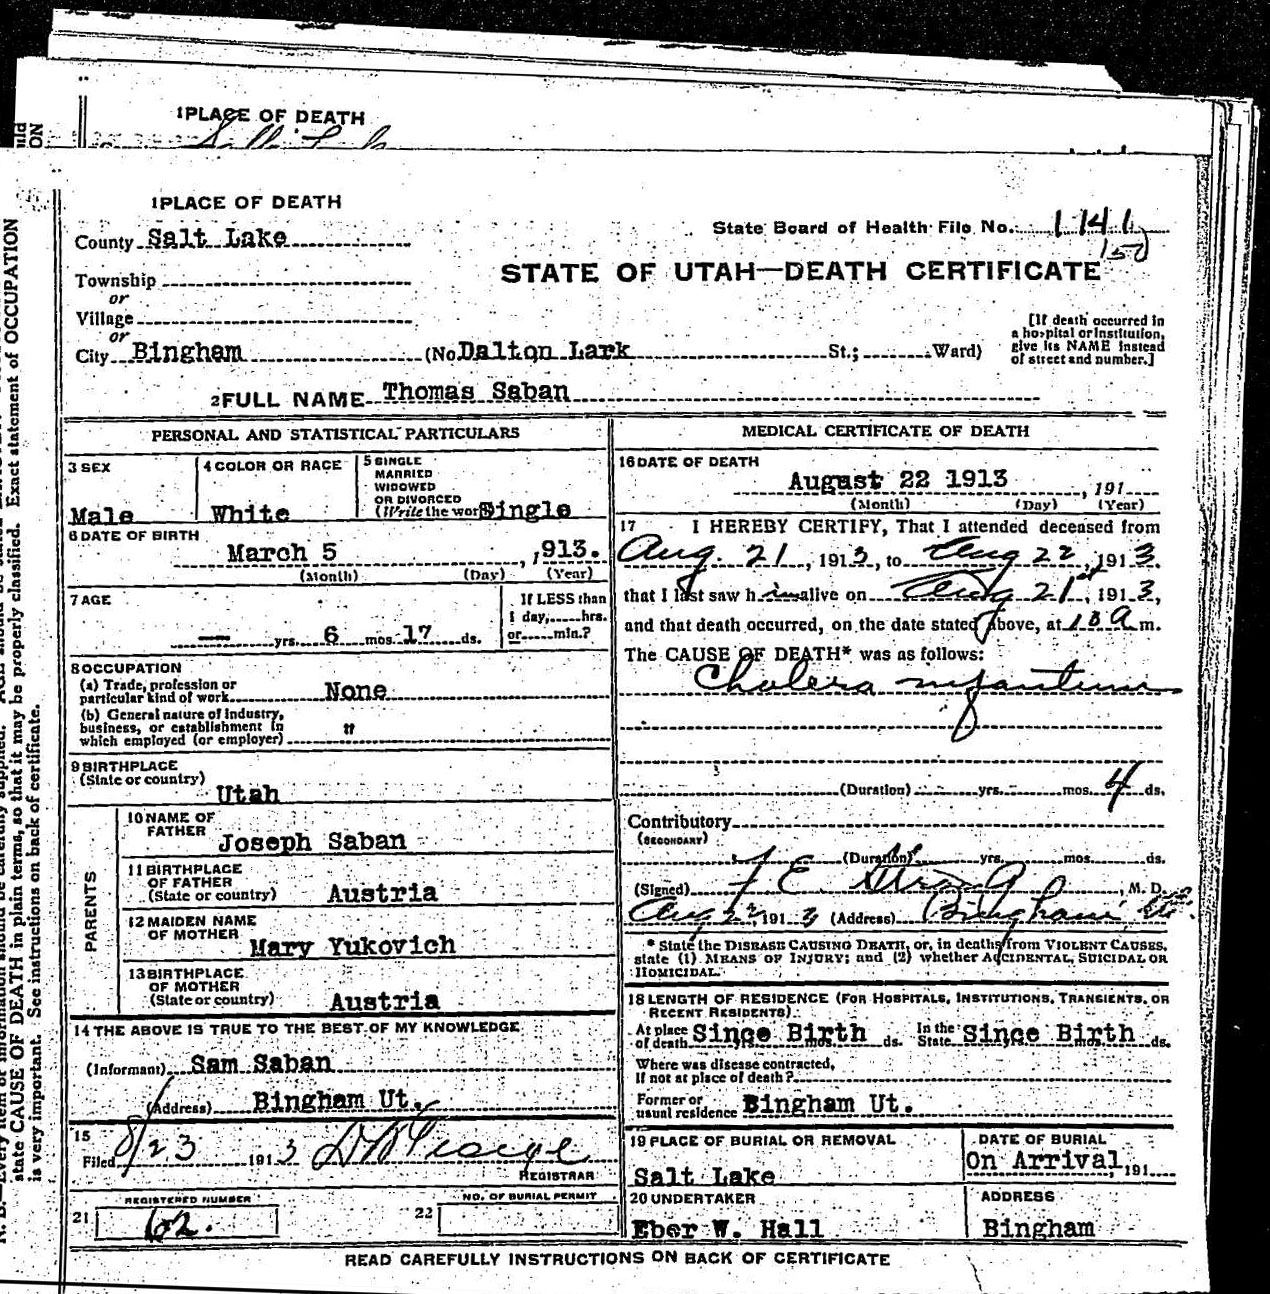 1 PLACE OF DEATH
1 PLACE OF DEATH
County Salt Lake
State Board of Health File No. 1141
150
STATE OF UTAH—DEATH CERTIFICATE
Township
or
Village
or
City Bingham (No. Dalton Lark St.; Ward)
[If death occurred in
a hospital or institution,
give its NAME instead
of street and number.]
2 FULL NAME Thomas Saban
PERSONAL AND STATISTICAL PARTICULARS
3 SEX
Male
4 COLOR OR RACE
White
5 SINGLE
MARRIED
WIDOWED
OR DIVORCED
(Write the word) Single
6 DATE OF BIRTH
March 5, 1913.
(Month) (Day) (Year)
7 AGE
— yrs. 6 mos. 17 ds.
If LESS than
1 day, hrs.
or min.?
8 OCCUPATION
(a) Trade, profession or
particular kind of work None
(b) General nature of industry,
business, or establishment in
which employed (or employer) "
9 BIRTHPLACE
(State or country)
Utah
PARENTS
10 NAME OF
FATHER
Joseph Saban
11 BIRTHPLACE
OF FATHER
(State or country) Austria
12 MAIDEN NAME
OF MOTHER
Mary Yukovich
13 BIRTHPLACE
OF MOTHER
(State or country) Austria
14 THE ABOVE IS TRUE TO THE BEST OF MY KNOWLEDGE
(Informant) Sam Saban
(Address) Bingham Ut.
15
Filed 8/23 1913
REGISTRAR
REGISTERED NUMBER
21 62.
NO. OF BURIAL PERMIT
22
MEDICAL CERTIFICATE OF DEATH
16 DATE OF DEATH
August 22 1913, 191
(Month) (Day) (Year)
17 I HEREBY CERTIFY, That I attended deceased from
Aug. 21, 1913, to Aug 22, 1913.
that I last saw him alive on Aug 21st, 1913,
and that death occurred, on the date stated above, at a m.
The CAUSE OF DEATH* was as follows:
Cholera infantum
(Duration) yrs. mos. 4 ds.
Contributory
(SECONDARY)
(Duration) yrs. mos. ds.
(Signed) F E Straup, M. D.
Aug 22 1913 (Address) Bingham Ut.
* State the DISEASE CAUSING DEATH, or, in deaths from VIOLENT CAUSES,
state (1) MEANS OF INJURY; and (2) whether ACCIDENTAL, SUICIDAL OR
HOMICIDAL.
18 LENGTH OF RESIDENCE (FOR HOSPITALS, INSTITUTIONS, TRANSIENTS, OR
RECENT RESIDENTS).
At place
of death Since Birth ds.
In the
State Since Birth ds.
Where was disease contracted,
if not at place of death?
Former or
usual residence Bingham Ut.
19 PLACE OF BURIAL OR REMOVAL
Salt Lake
DATE OF BURIAL
On Arrival, 191
20 UNDERTAKER
Eber W. Hall
ADDRESS
Bingham
READ CAREFULLY INSTRUCTIONS ON BACK OF CERTIFICATE
state CAUSE OF DEATH in plain terms, so that it may be properly classified. Exact statement of OCCUPATION
is very important. See instructions on back of certificate.